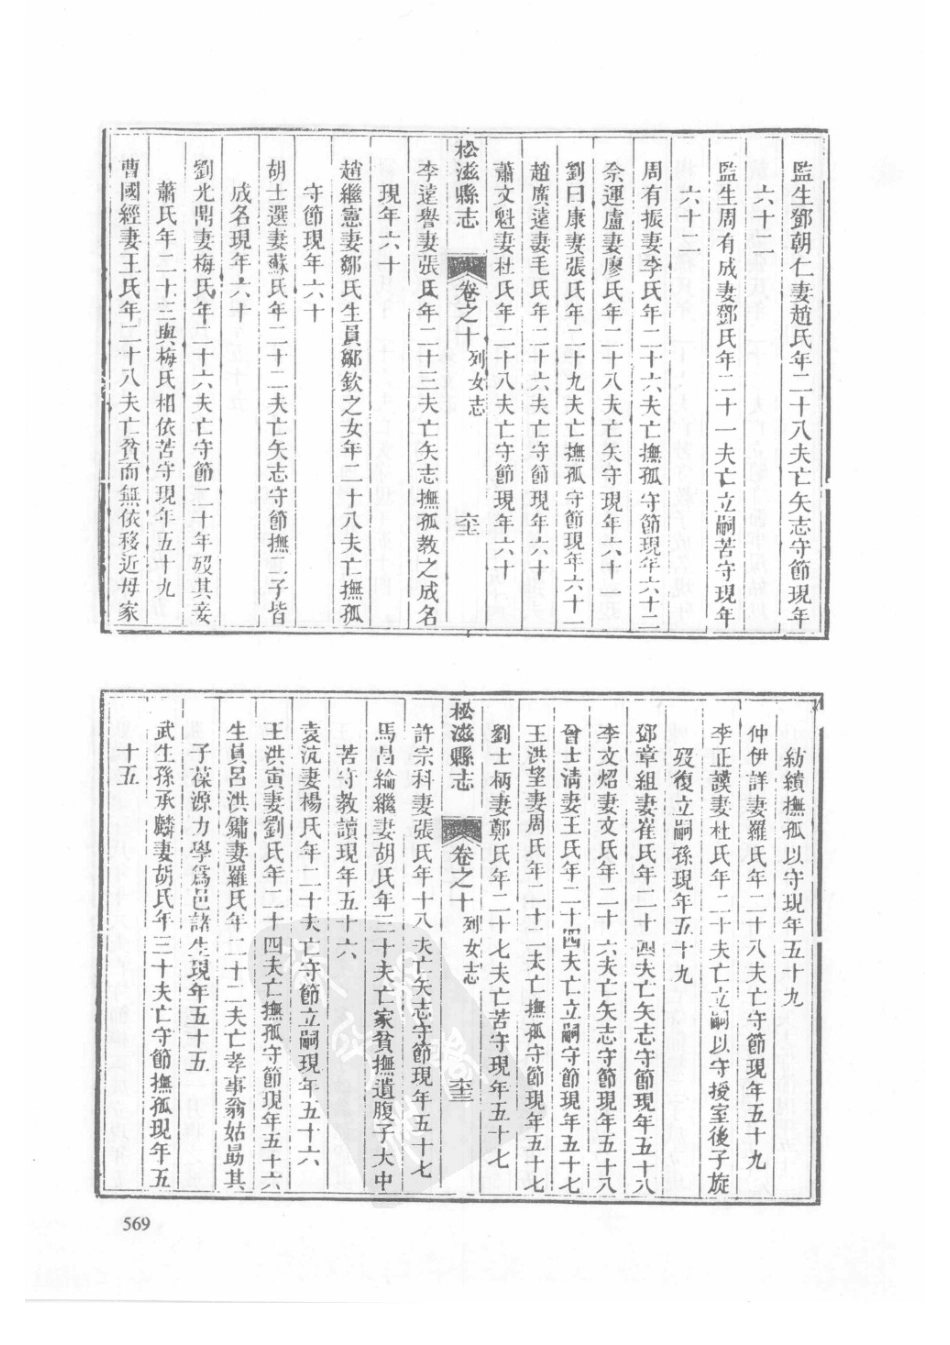 監生鄧朝仁妻趙氏年二十八夫亡矢志守節現年
六十二
監生周有成妻鄧氏年二十一夫亡立嗣苦守現年
六十二
周有振妻李氏年二十六夫亡撫孤守節現年六十二
余運盧妻廖氏年二十八夫亡矢守現年六十一
劉曰康妻張氏年二十九夫亡撫孤守節現年六十一
趙廣遠妻毛氏年二十六夫亡守節現年六十
蕭文魁妻杜氏年二十八夫亡守節現年六十
松滋縣志 卷之十 列女志
李遠譽妻張氏年二十三夫亡矢志撫孤教之成名
現年六十
趙繼憲妻鄒氏生員鄒欽之女年二十八夫亡撫孤
守節現年六十
胡士選妻蘇氏年二十二夫亡矢志守節撫二子皆
成名現年六十
劉光鼎妻梅氏年二十六夫亡守節二十年歿其妾
蕭氏年二十三與梅氏相依苦守現年五十九
曹國經妻王氏年二十八夫亡貧而無依移近母家
紡績撫孤以守現年五十九
仲伊詳妻羅氏年二十八夫亡守節現年五十九
李正謨妻杜氏年二十夫亡立嗣以守授室後子旋
歿復立嗣孫現年五十九
鄧章組妻崔氏年二十四夫亡矢志守節現年五十八
李文炤妻文氏年二十六夫亡矢志守節現年五十八
曾士淸妻王氏年二十四夫亡立嗣守節現年五十七
王洪望妻周氏年二十二夫亡撫孤守節現年五十七
劉士柄妻鄭氏年二十七夫亡苦守現年五十七
松滋縣志 卷之十 列女志
許宗科妻張氏年十八夫亡矢志守節現年五十七
馬昌綸繼妻胡氏年三十夫亡家貧撫遺腹子大中
苦守教讀現年五十六
袁沆妻楊氏年二十夫亡守節立嗣現年五十六
王洪寅妻劉氏年二十四夫亡撫孤守節現年五十六
生員呂洪鏞妻羅氏年二十二夫亡孝事翁姑勗其
子葆源力學爲邑諸生現年五十五
武生孫承麟妻胡氏年三十夫亡守節撫孤現年五
十五
569